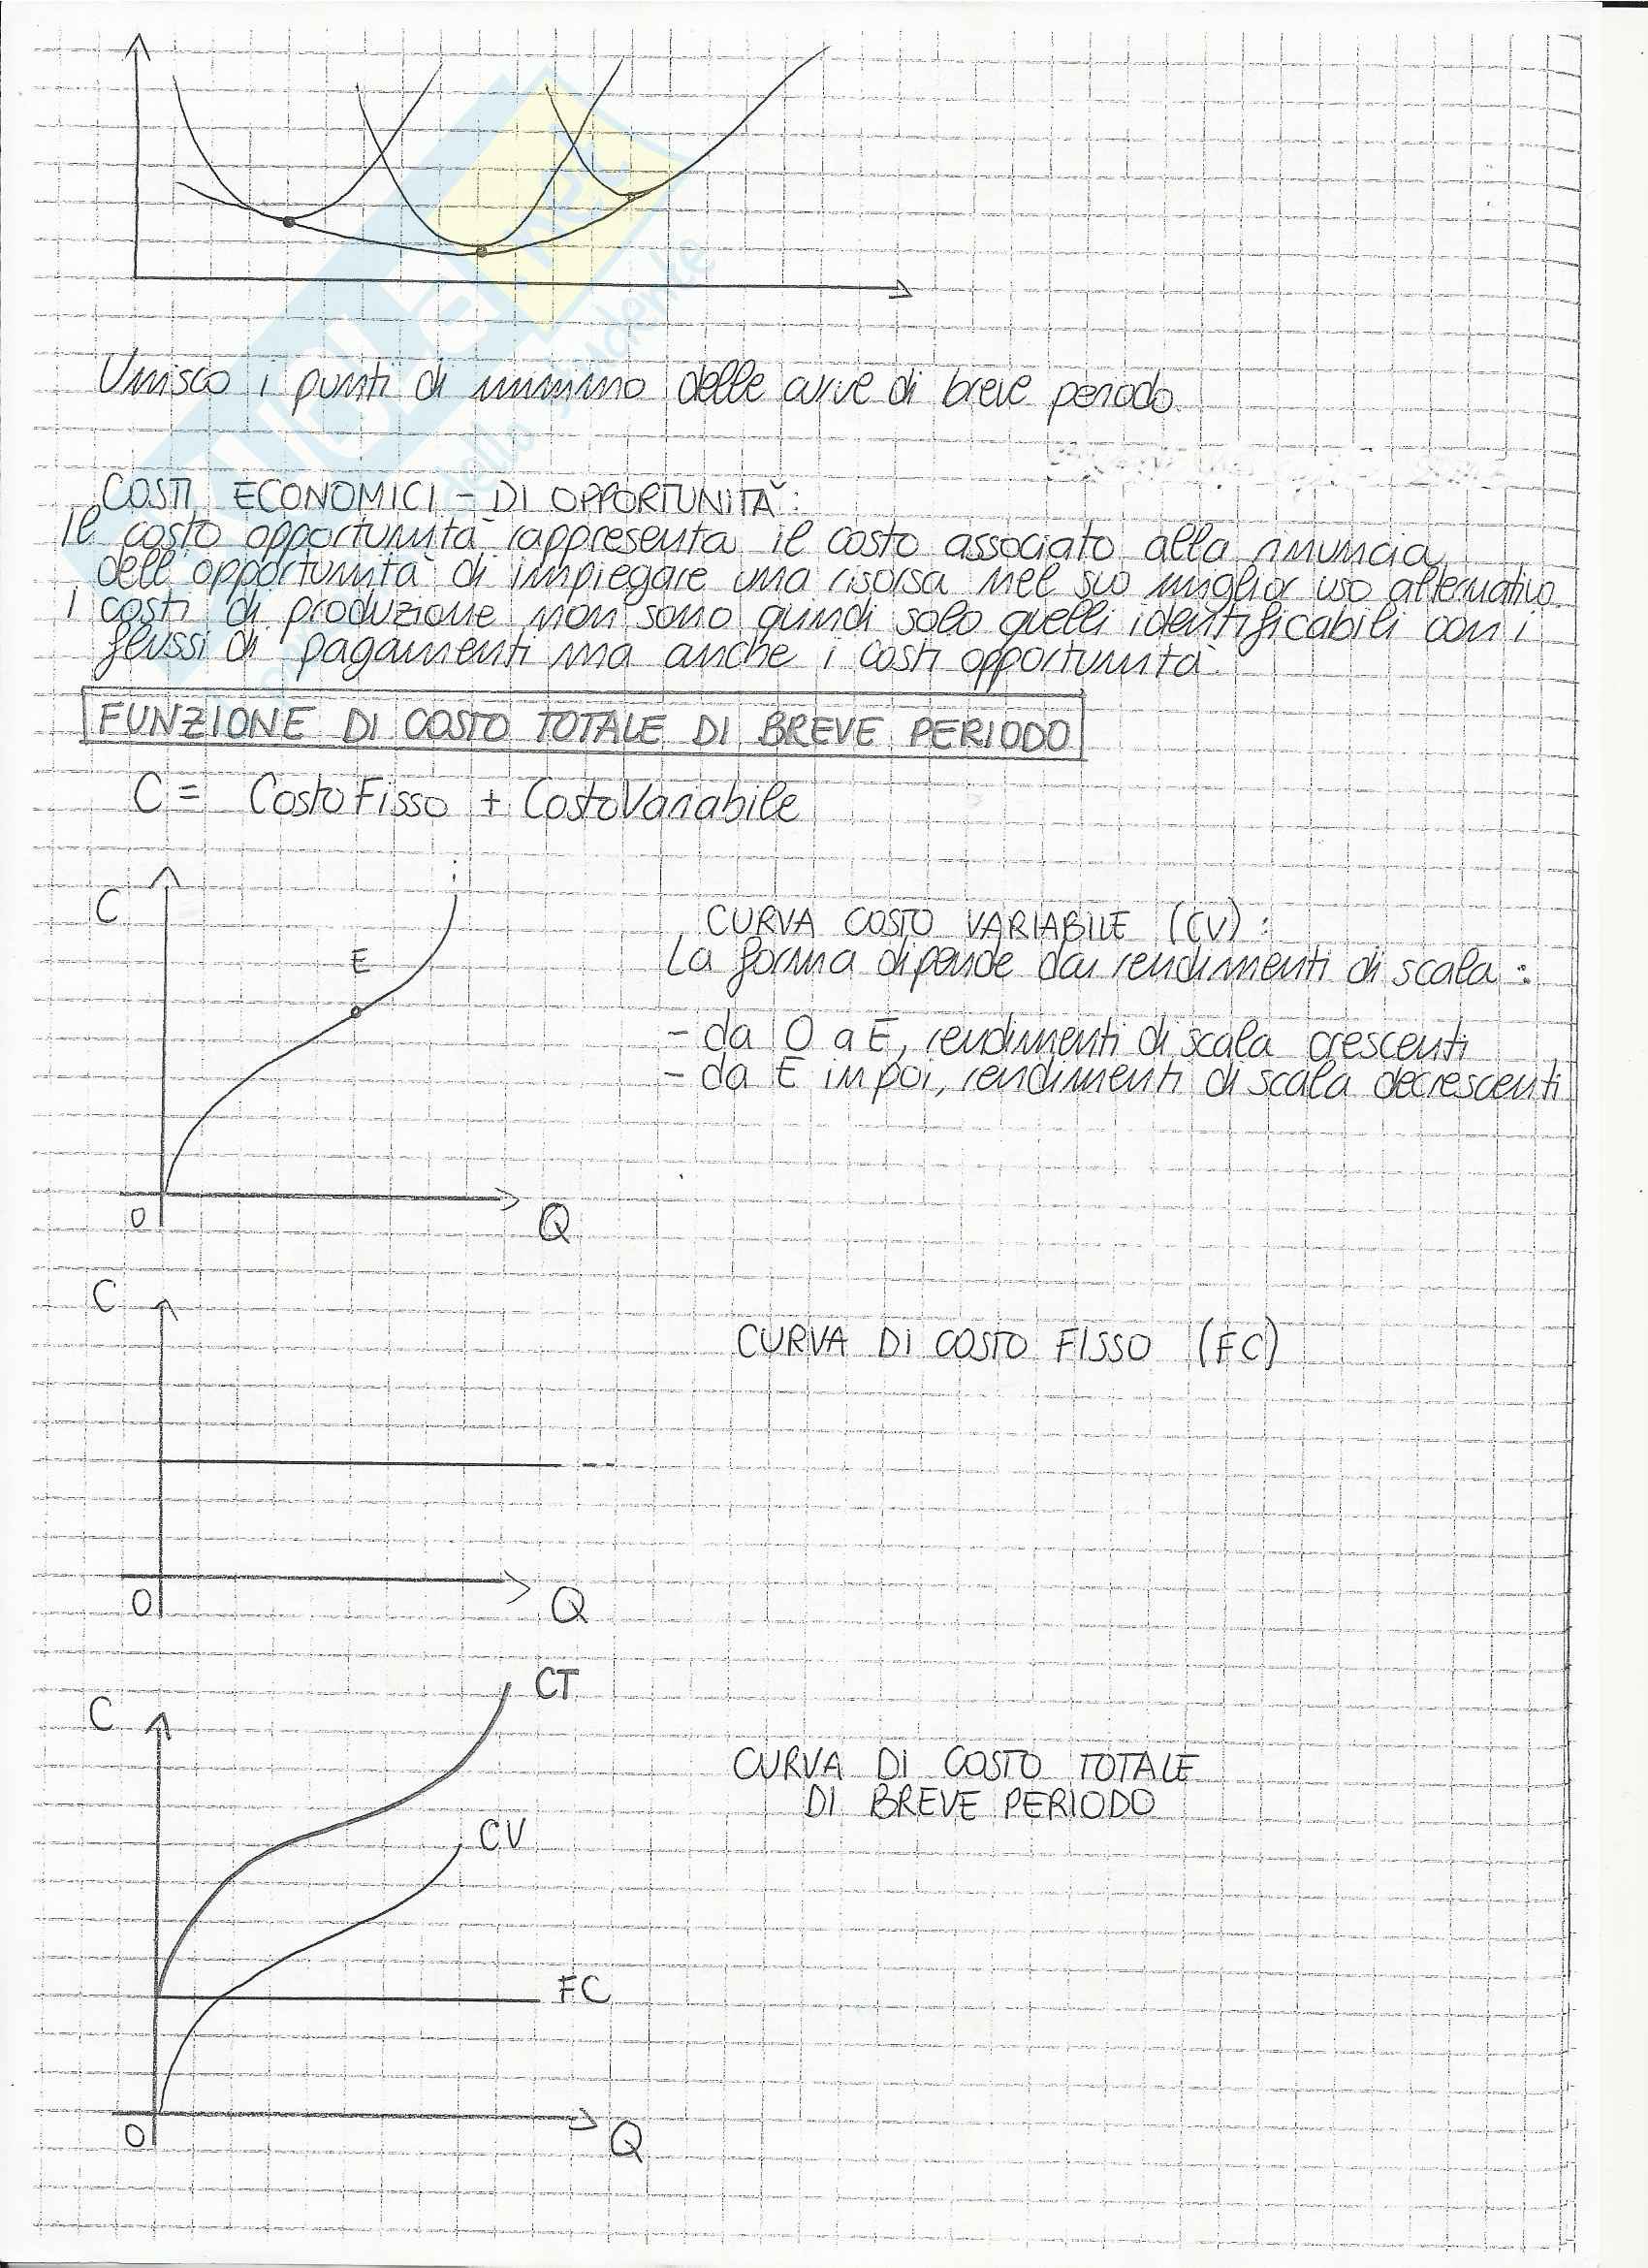 Unisco i punti di minimo delle curve di breve periodo.
COSTI ECONOMICI - DI OPPORTUNITÀ:
Il costo opportunità rappresenta il costo associato alla rinuncia
dell'opportunità di impiegare una risorsa nel suo miglior uso alternativo.
I costi di produzione non sono quindi solo quelli identificabili con i
flussi di pagamenti ma anche i costi opportunità.
FUNZIONE DI COSTO TOTALE DI BREVE PERIODO
C = Costo Fisso + Costo Variabile
C
E
O
Q
CURVA COSTO VARIABILE (CV):
La forma dipende dai rendimenti di scala:
- da O a E, rendimenti di scala crescenti
- da E in poi, rendimenti di scala decrescenti
C
O
Q
CURVA DI COSTO FISSO (FC)
C
CT
CV
FC
O
Q
CURVA DI COSTO TOTALE
DI BREVE PERIODO